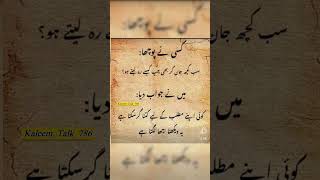 کسی نے پوچھا:
سب کچھ جان کر بھی چپ کیسے رہ لیتے ہو؟
میں نے جواب دیا:
کوئی اپنے مطلب کے لیے کتنا گر سکتا ہے
یہ دیکھنا اچھا لگتا ہے
Kaleem Talk 786